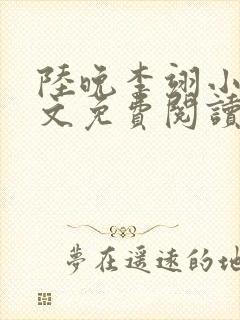 陸晚李翊小
文免費閱讀
夢在遥遠的地